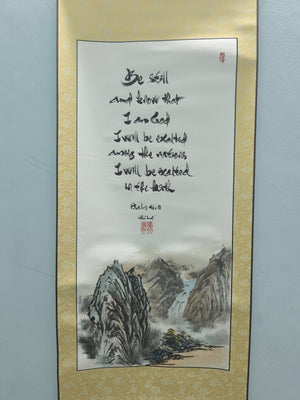 Be still
and know that
I am God
I will be exalted
among the nations
I will be exalted
in the Earth
Psalm 46:10